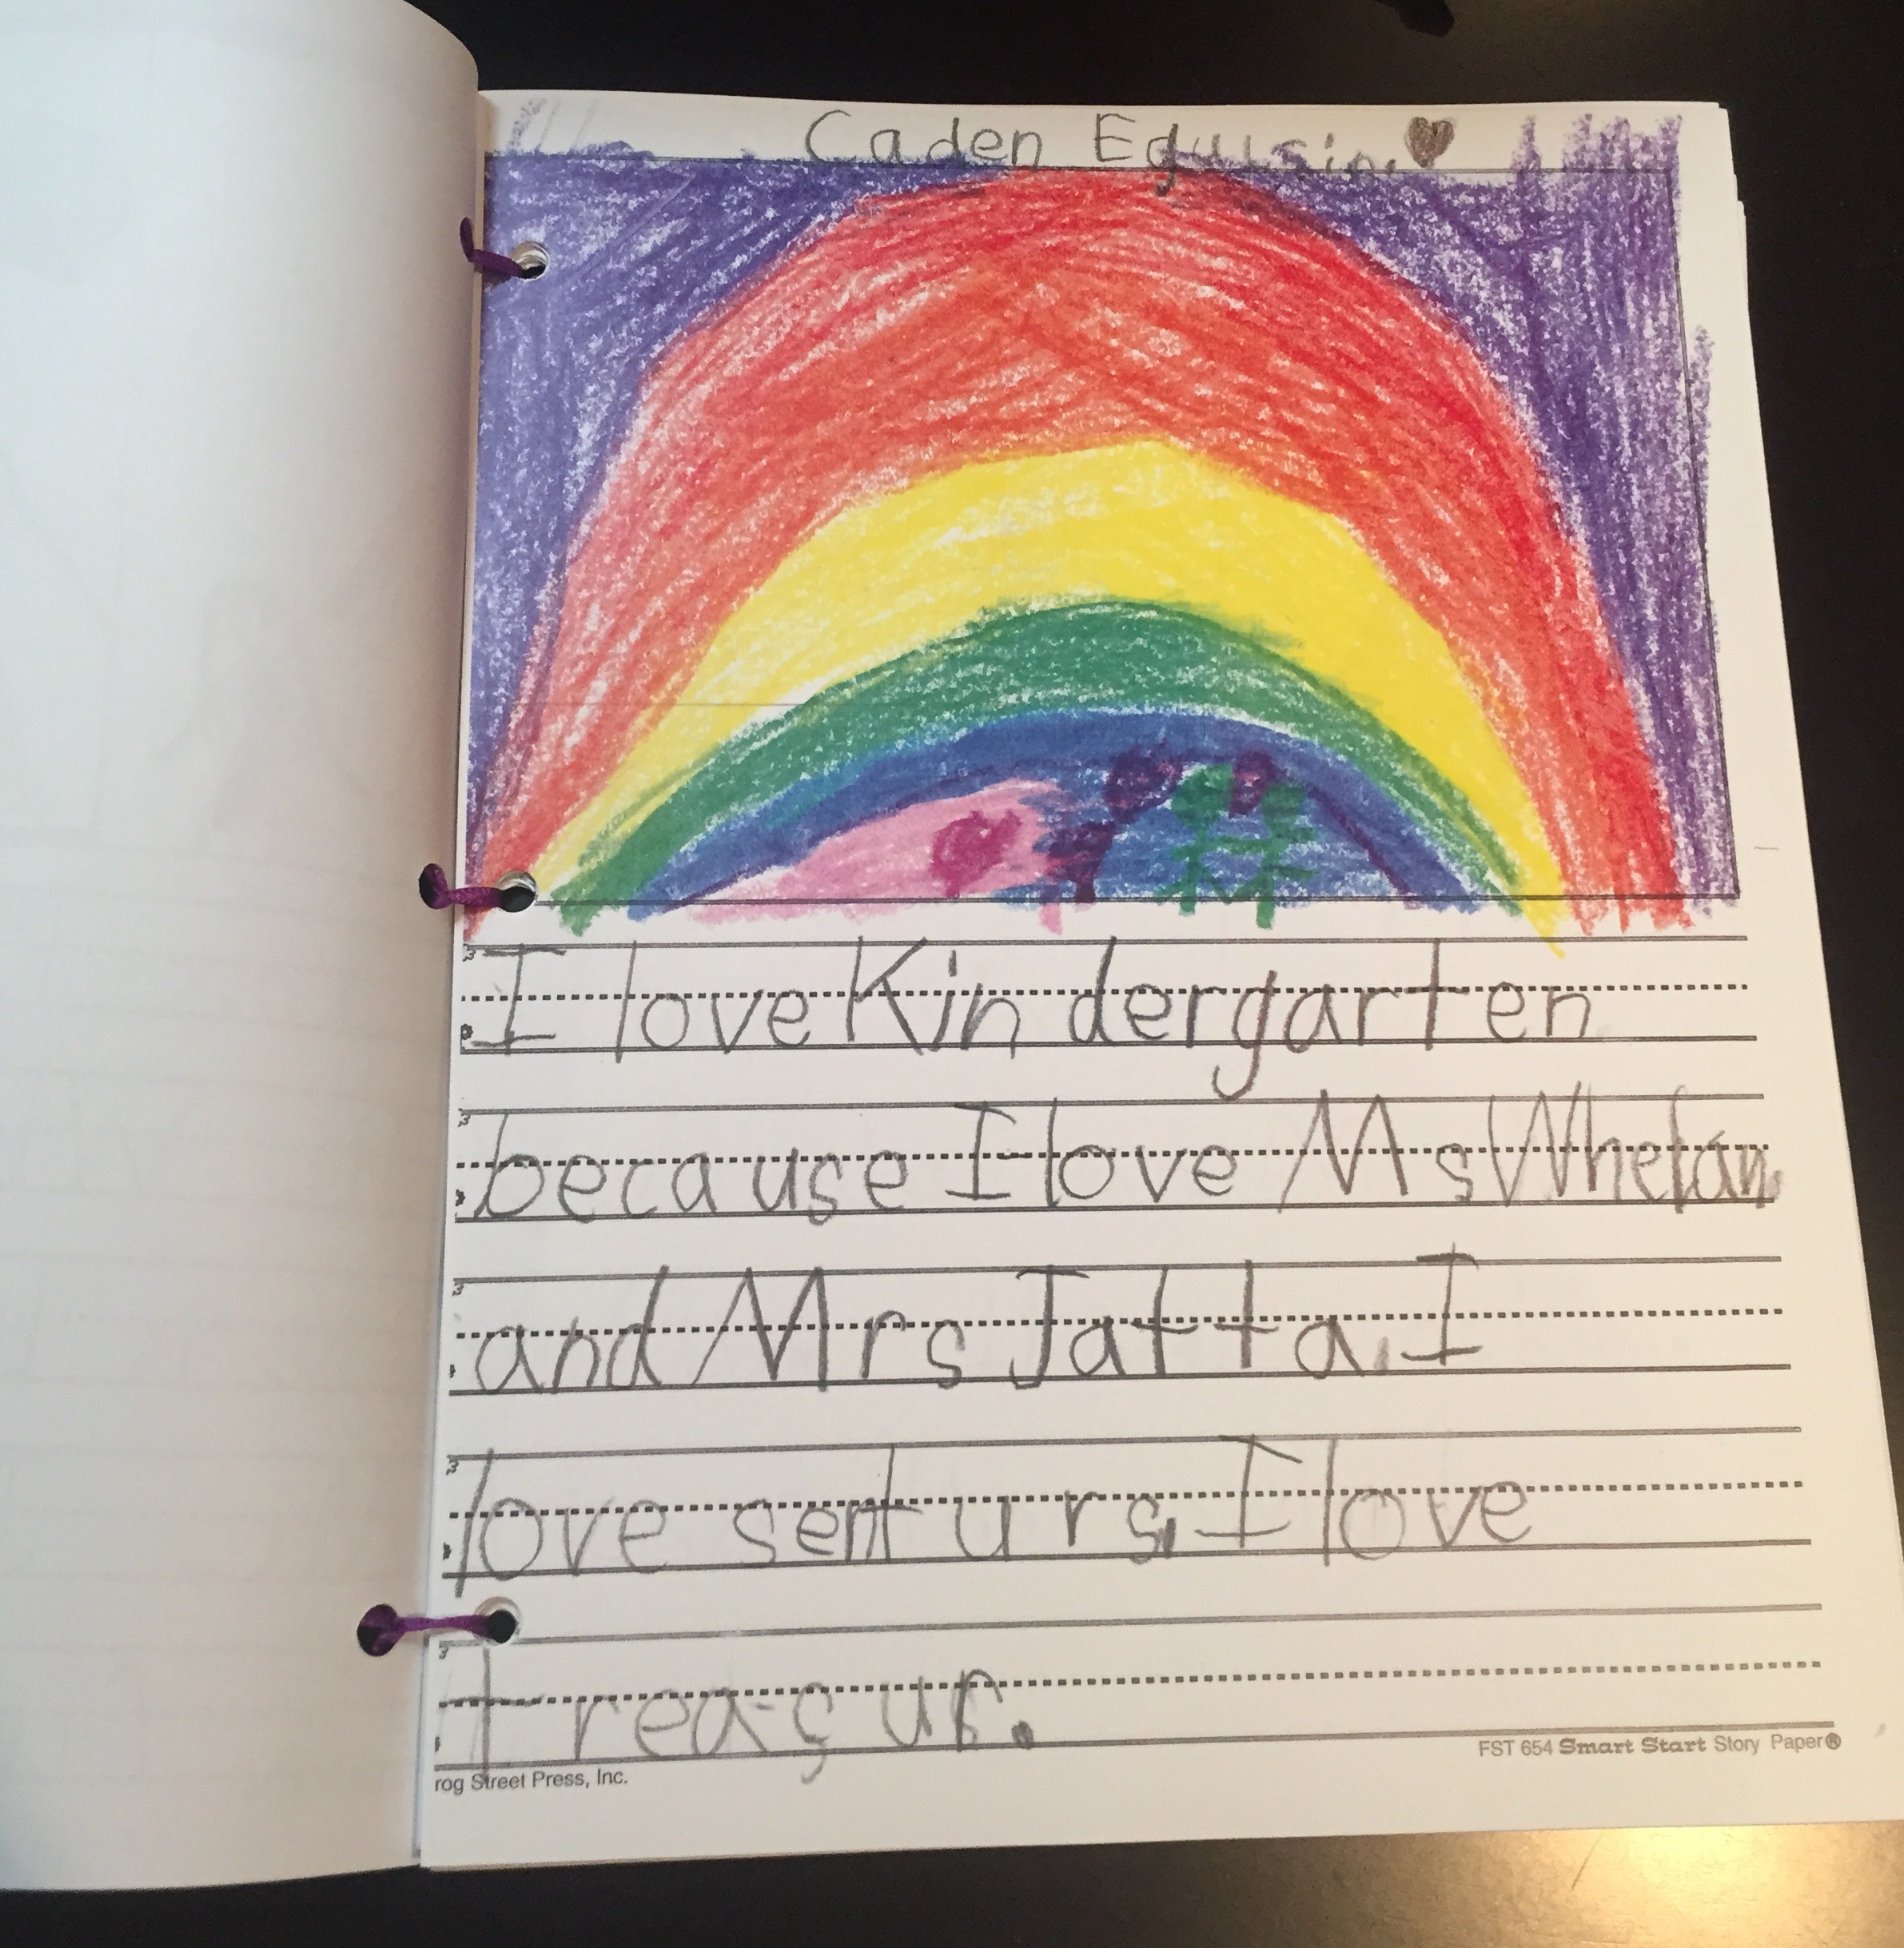 Caden
I love Kindergarten
because I love Ms Whelan
and Mrs Jatta. I
love senturs. I love
treasur.
FST 654 Smart Start Story Paper®
rog Street Press, Inc.